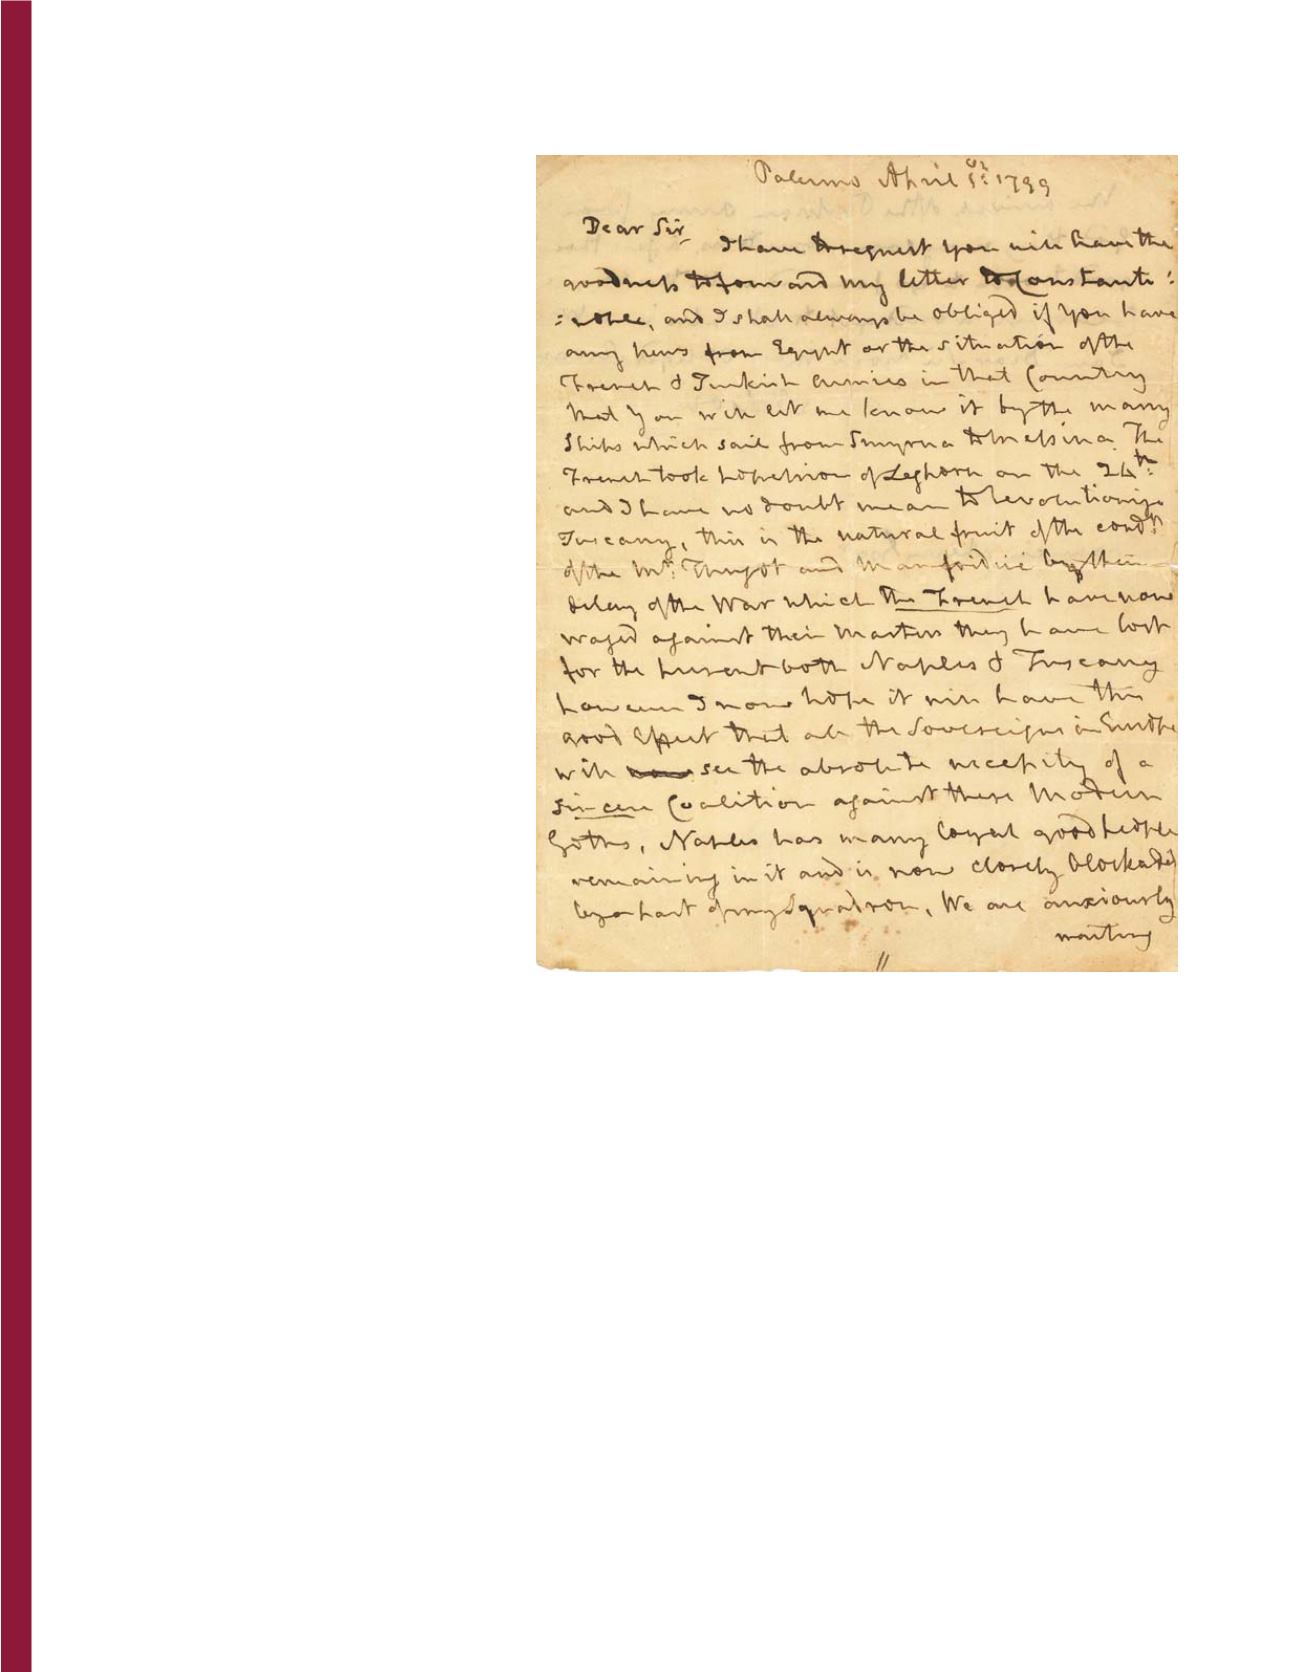 Palermo April 5th: 1799
Dear Sir,
I have to request you will have the
goodness to forward my letter to Constanti:
:nople, and I shall always be obliged if you have
any news from Egypt or the situation of the
French & Turkish Armies in that Country
that you will let me know it by the many
Ships which sail from Smyrna to Messina. The
French took possession of Leghorn on the 24th:
and I have no doubt mean to revolutionize
Tuscany, this is the natural fruit of the condt
of the Mrs: Thugot and Manfridini by their
delay of the War which the French have now
waged against their Masters they have lost
for the present both Naples & Tuscany
however I now hope it will have this
good effect that all the Sovereigns in Europe
will see the absolute necessity of a
sincere Coalition against these Modern
Goths, Naples has many loyal good people
remaining in it and is now closely blockaded
by a part of my Squadron, We are anxiously
waiting